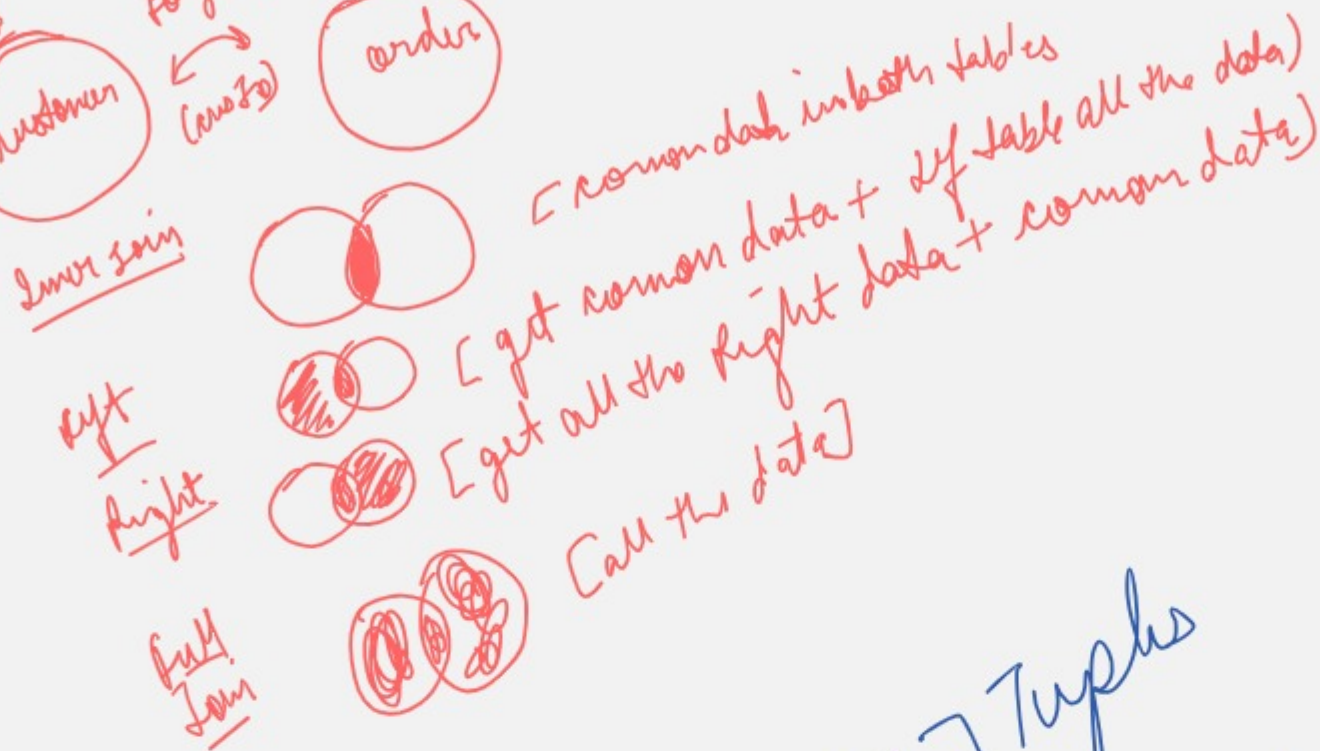 order
customer
Inner Join
[comon data in both tables
Left
[get comon data + left table all the data)
Right
[get all the Right data + comon data)
Full
Join
[all the data]
Tuples